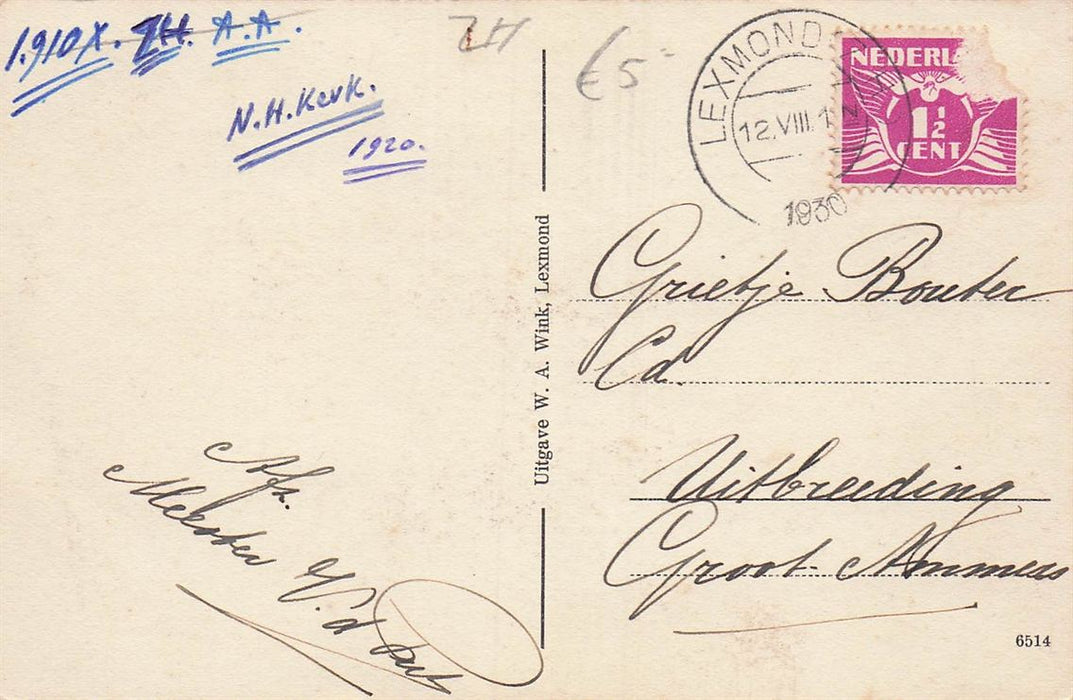 1.910X. ZH. A.A.
N.H. Kerk.
1920.
ZH
€5-
LEXMOND
12.VIII.1
1930
NEDERL
1½
CENT
Uitgave W. A. Wink, Lexmond
Grietje Bouter
Cd.
Uitbreeding
Groot Ammers
Afz.
Meester V.d
6514